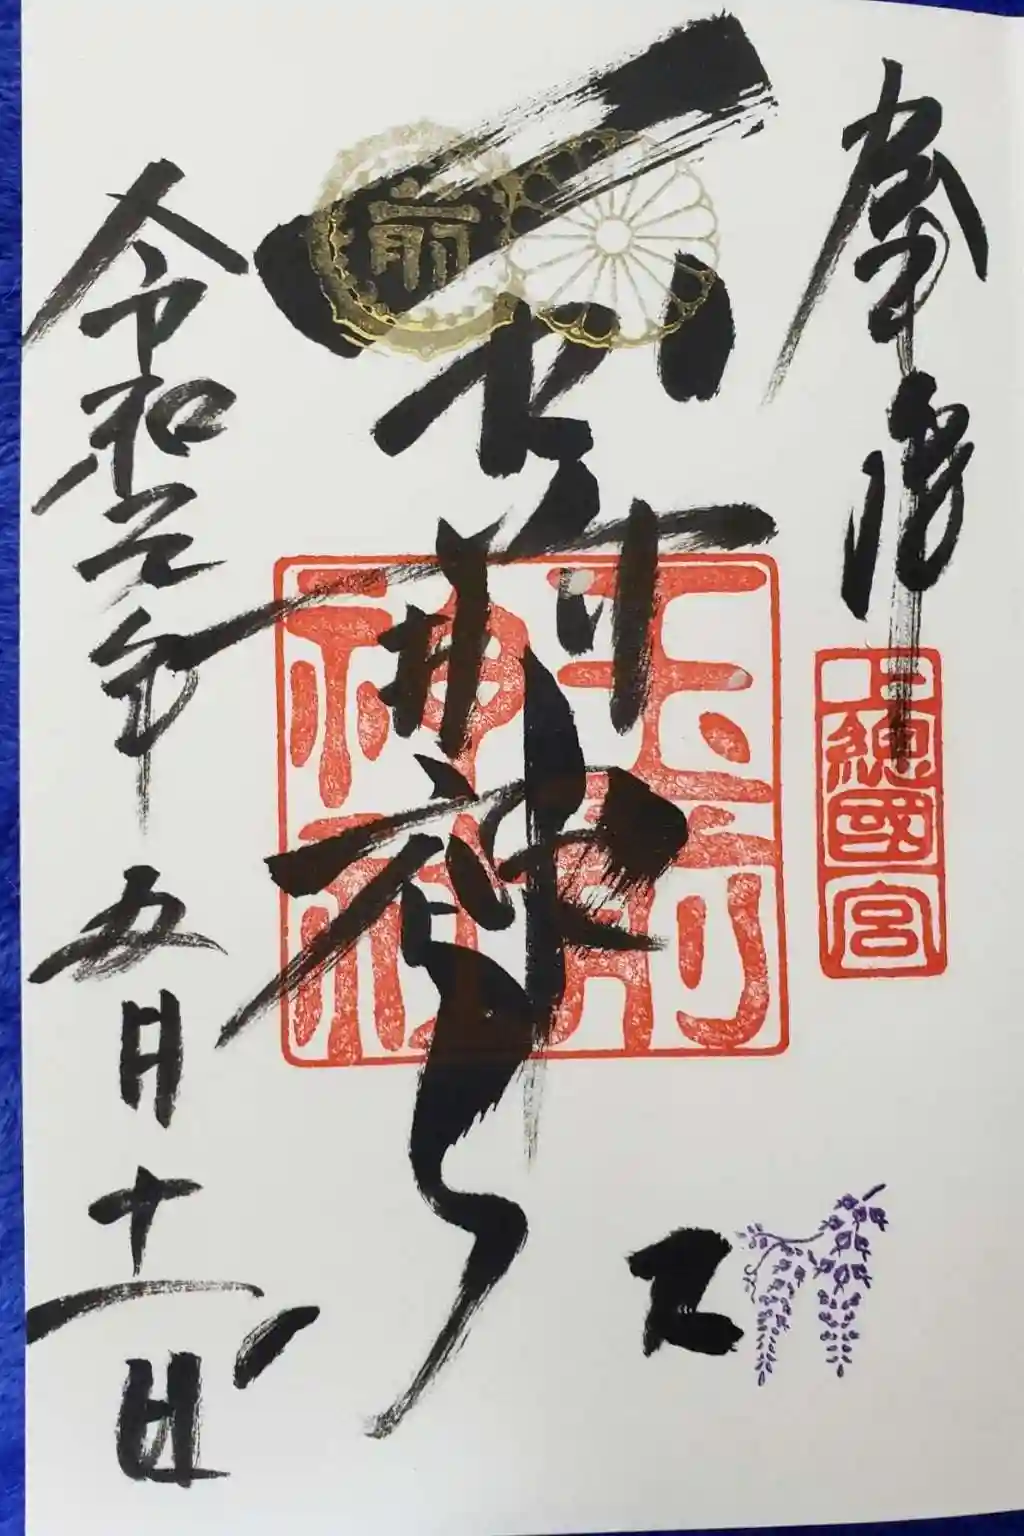 奉拝
上總國
一宮
玉前神社
玉前神社
前
令和元年五月十一日